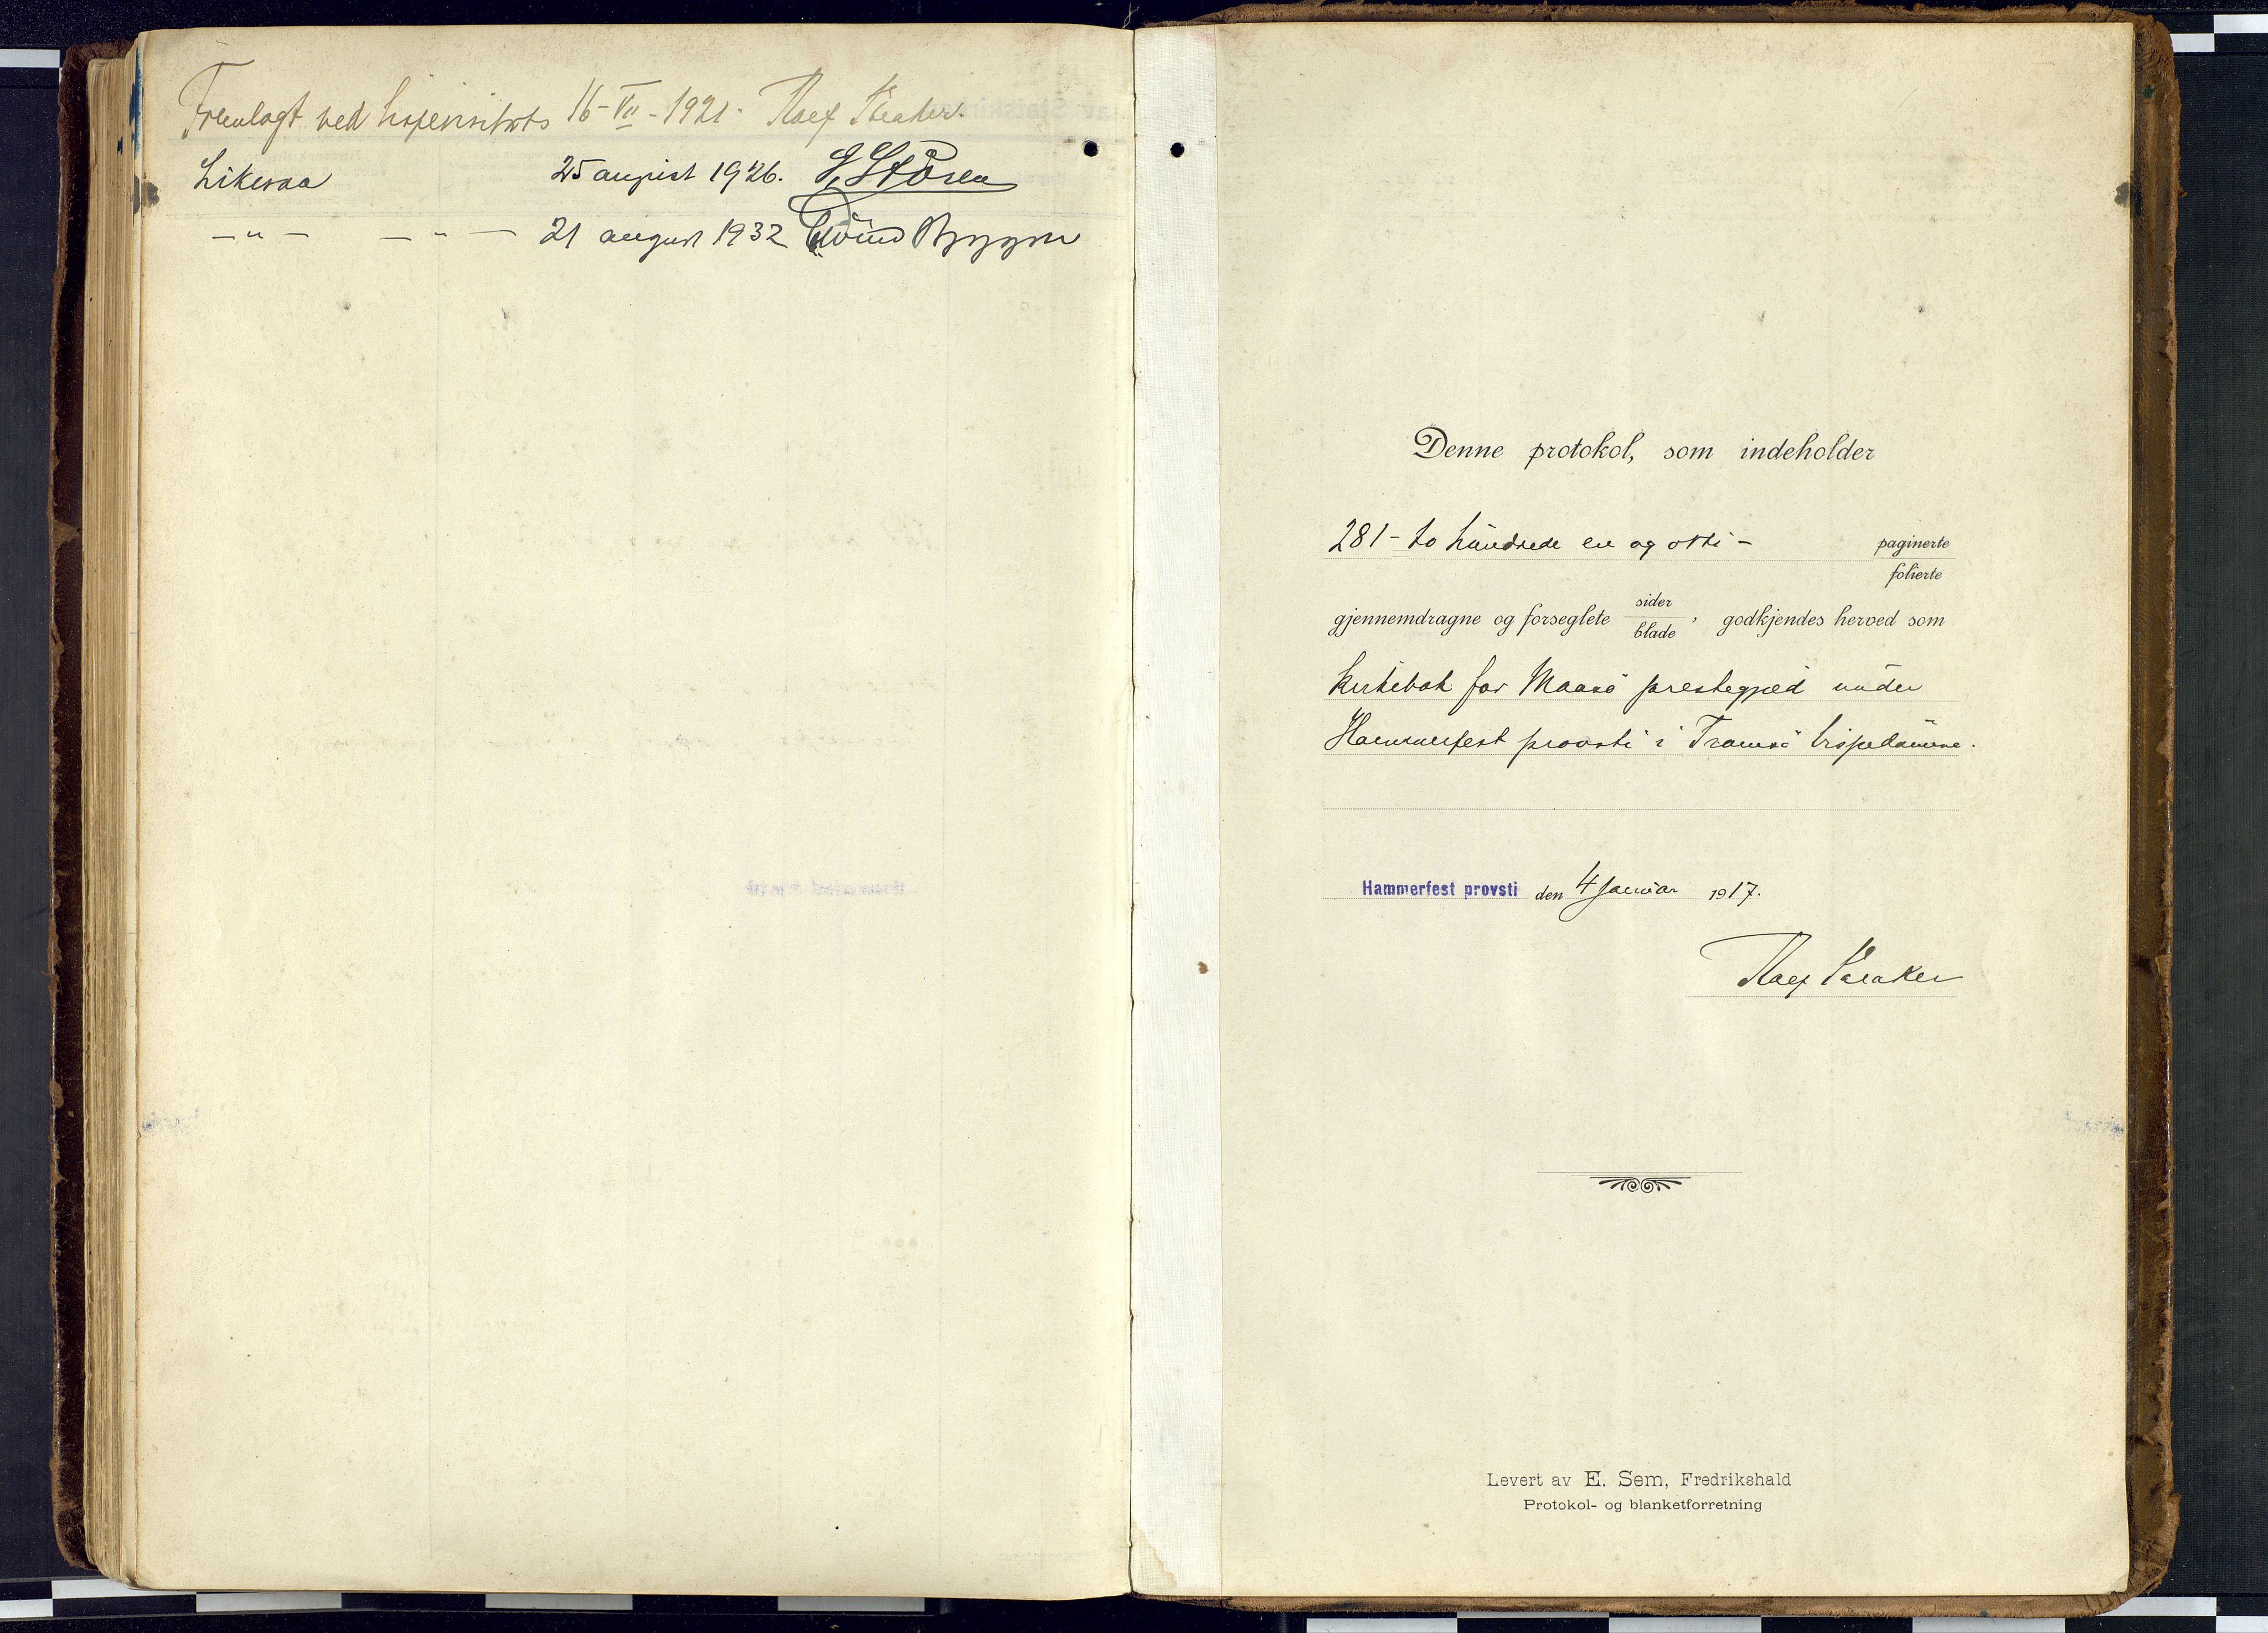 Fremlagt ved bispevisitats 16-VII-1921.
Likesaa 25 august 1926. J. Støren
— " — — " — 21 august 1932 Eivind Berggrav
Denne protokol, som indeholder
281 - to hundrede en og otti - paginerte
folierte
gjennemdragne og forseglete sider
blade, godkjendes herved som
kirkebok for Maasö prestegjeld under
Hammerfest provsti i Tromsö bispedömme.
Hammerfest provsti den 4 januar 1917.
Levert av E. Sem, Fredrikshald
Protokol- og blanketforretning